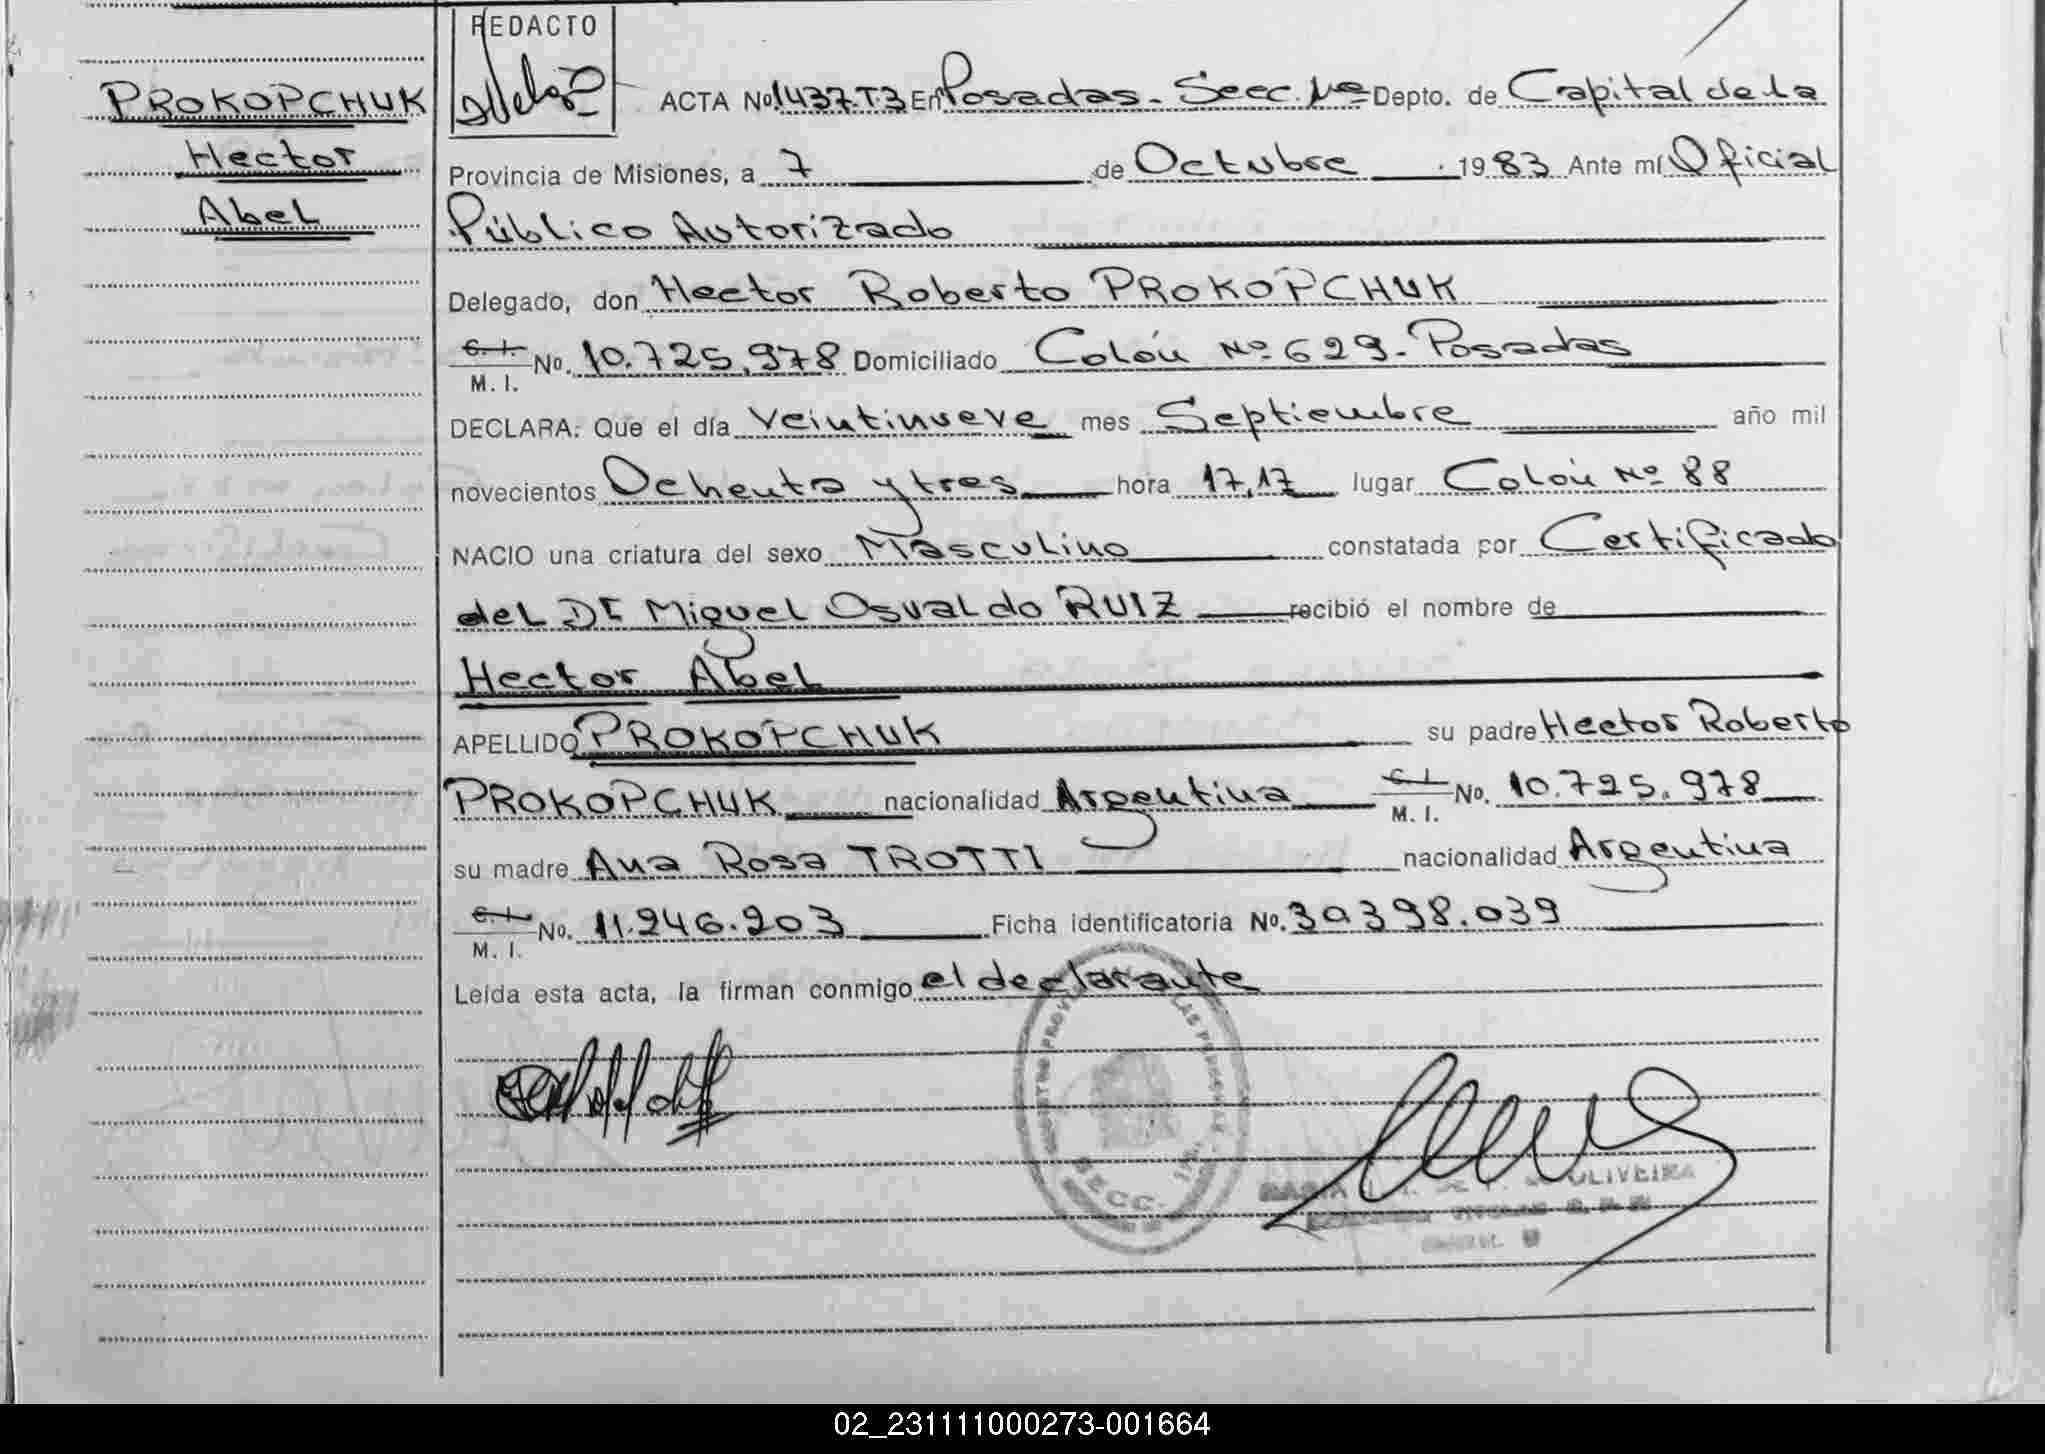 REDACTO
PROKOPCHUK
Hector
Abel
ACTA No. 1437.T.3 En Posadas - Secc. 1ª Depto. de Capital de la
Provincia de Misiones, a 7 de Octubre 1983 Ante mí Oficial
Público Autorizado
Delegado, don Hector Roberto PROKOPCHUK
C. I.
M. I. No. 10.725.978 Domiciliado Colón Nº 629 - Posadas
DECLARA: Que el día veintinueve mes Septiembre año mil
novecientos Ochenta y tres hora 17,17 lugar Colón Nº 88
NACIO una criatura del sexo Masculino constatada por Certificado
del Dr Miguel Osvaldo RUIZ recibió el nombre de
Hector Abel
APELLIDO PROKOPCHUK su padre Hector Roberto
PROKOPCHUK nacionalidad Argentina C. I. M. I. No. 10.725.978
su madre Ana Rosa TROTTI nacionalidad Argentina
C. I.
M. I. No. 11.246.203 Ficha identificatoria No. 30.398.039
Leída esta acta, la firman conmigo el declarante
SECC. 1ra.
OLIVEIRA
02_231111000273-001664